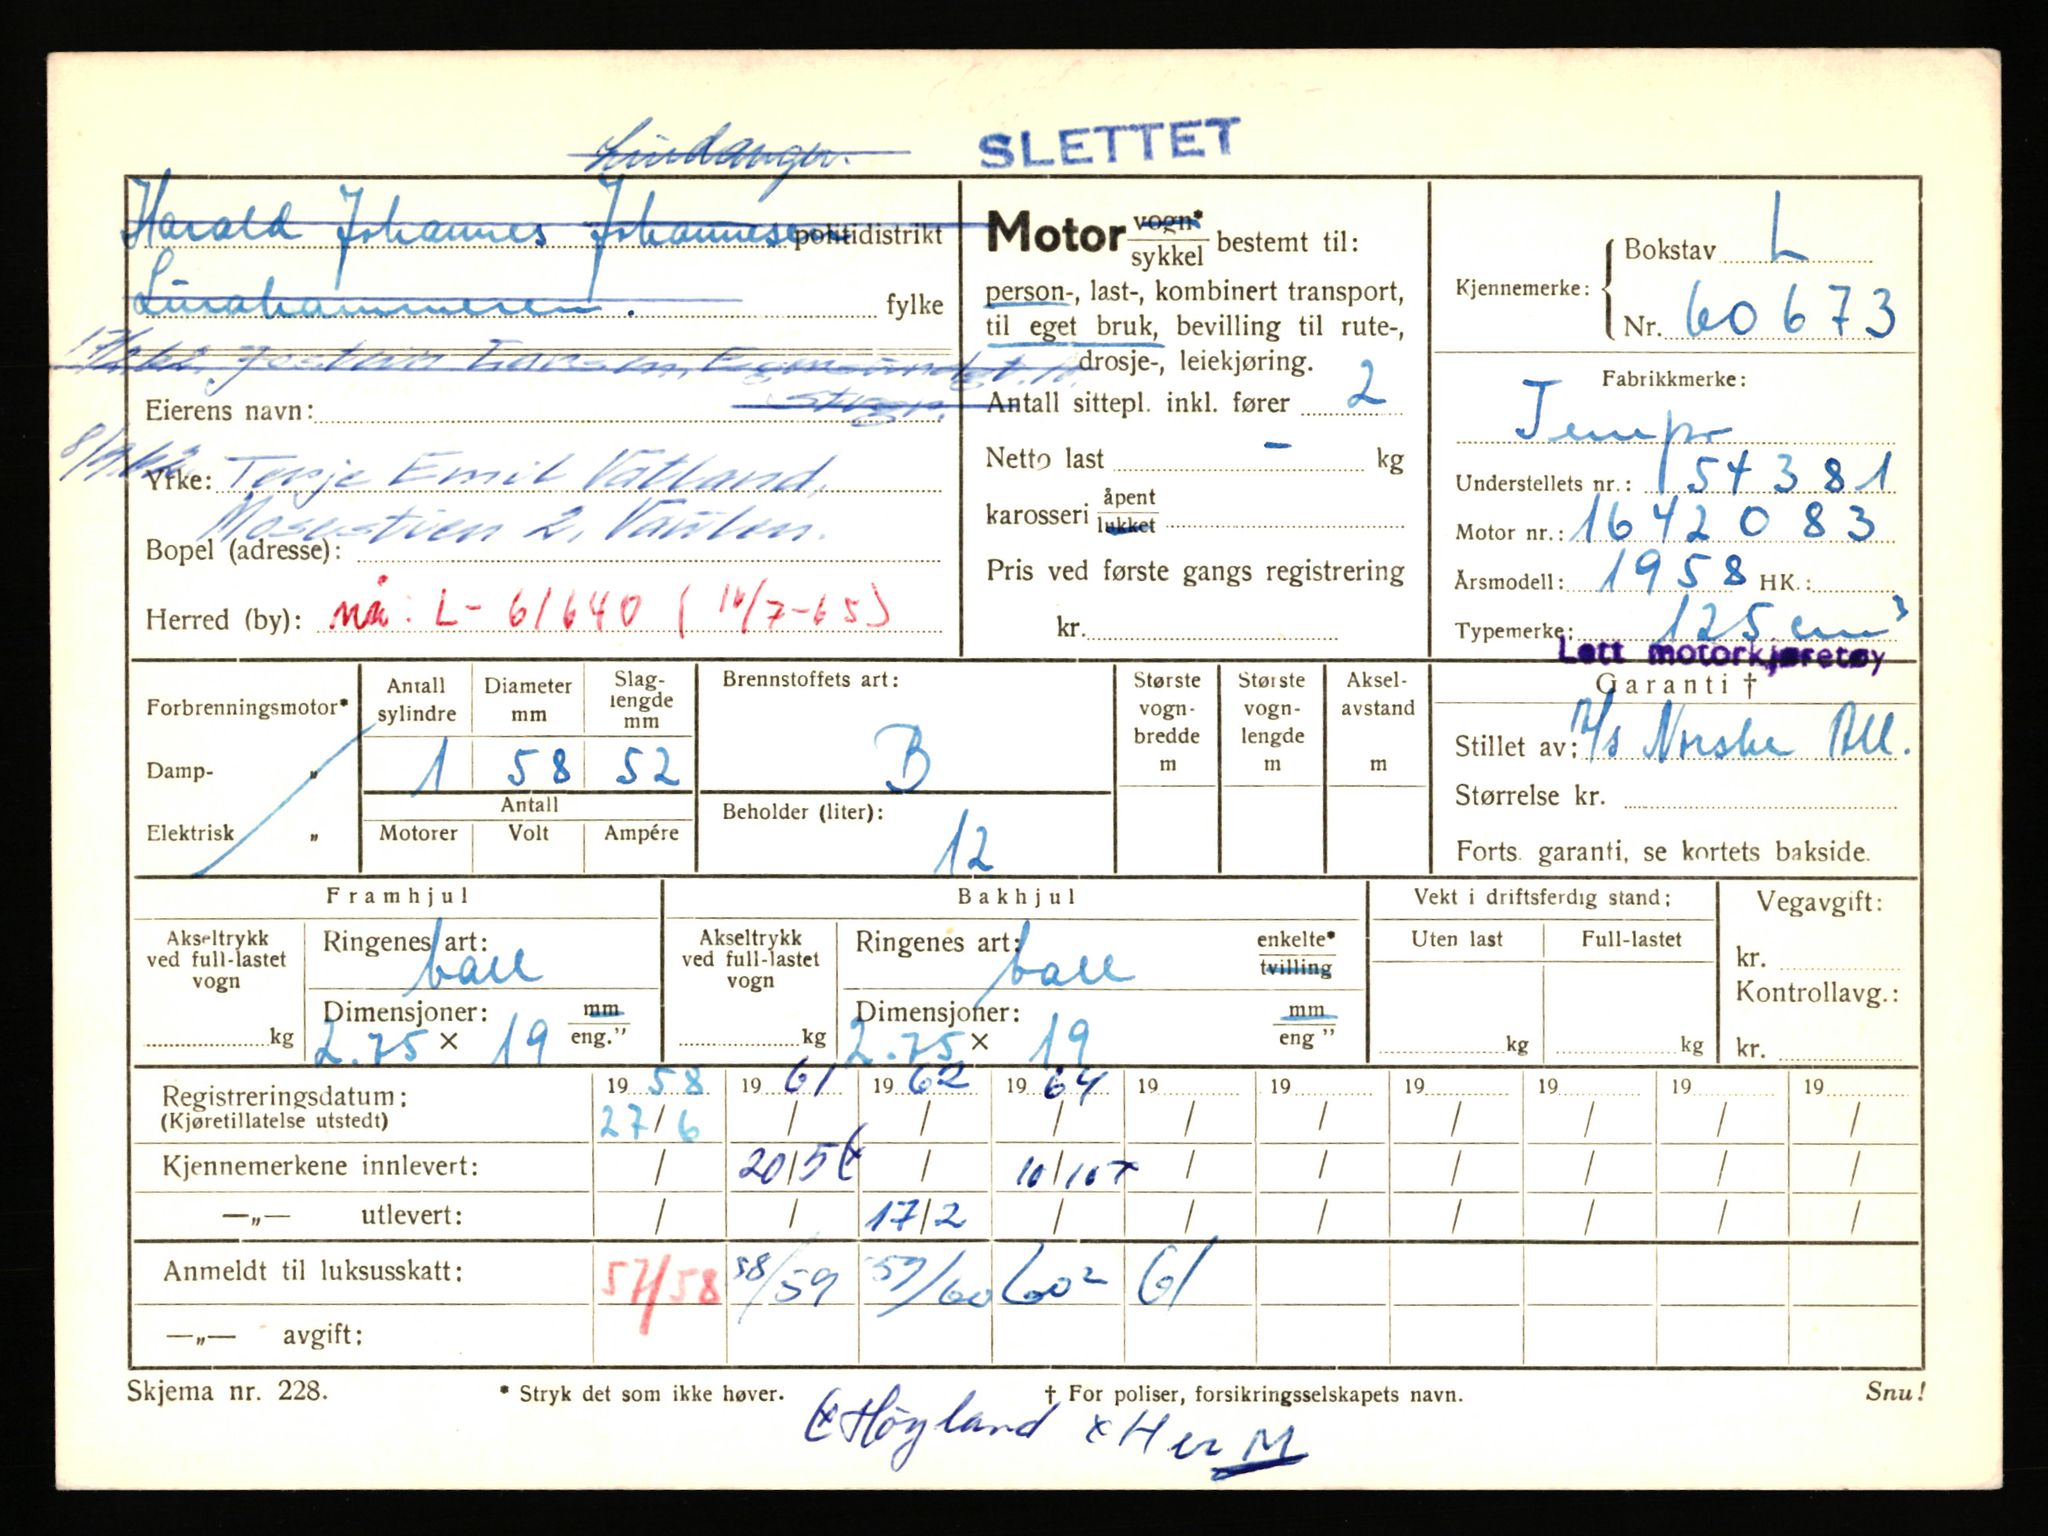 SLETTET
Harald Johannes Johannesen politidistrikt
Lurahammeren. fylke
Eierens navn:
Yrke: Terje Emil Vatland,
2, Vaulen.
Bopel (adresse):
Herred (by): nå: L- 61640 (16/7-65)
Motor vogn*/sykkel bestemt til:
person-, last-, kombinert transport,
til eget bruk, bevilling til rute-,
drosje-, leiekjøring.
Antall sittepl. inkl. fører 2
Netto last - kg
karosseri åpent/lukket
Pris ved første gangs registrering
kr.
Kjennemerke: Bokstav L
Nr. 60673
Fabrikkmerke:
Tempo
Understellets nr.: 154381
Motor nr.: 1642083
Årsmodell: 1958 HK.:
Typemerke: 125 cm³
Lett motorkjøretøy
Garanti †
Stillet av: A/S Norske All.
Størrelse kr.
Forts. garanti, se kortets bakside.
Forbrenningsmotor*
Damp- „
Elektrisk „
Antall sylindre Diameter mm Slag-lengde mm
1 58 52
Antall
Motorer Volt Ampére
Brennstoffets art:
B
Beholder (liter):
12
Største vogn-bredde m
Største vogn-lengde m
Aksel-avstand m
Framhjul
Akseltrykk ved full-lastet vogn kg
Ringenes art: ball
Dimensjoner: 2.75 × 19 mm/eng.”
Bakhjul
Akseltrykk ved full-lastet vogn kg
Ringenes art: ball enkelte*/tvilling
Dimensjoner: 2.75 × 19 mm/eng”
Vekt i driftsferdig stand:
Uten last Full-lastet
kg kg
Vegavgift:
kr.
Kontrollavg.:
kr.
Registreringsdatum: 19 58 19 61 19 62 19 64 19 19 19 19 19 19
(Kjøretillatelse utstedt) 27/6 / / / / / / / / /
Kjennemerkene innlevert: / 20/5 / 10/10 x / / / / / /
—„— utlevert: / / 17/2 / / / / / / /
Anmeldt til luksusskatt: 57/58 58/59 59/60 60² 61
—„— avgift:
Skjema nr. 228. * Stryk det som ikke høver. † For poliser, forsikringsselskapets navn. Snu!
Höyland x H